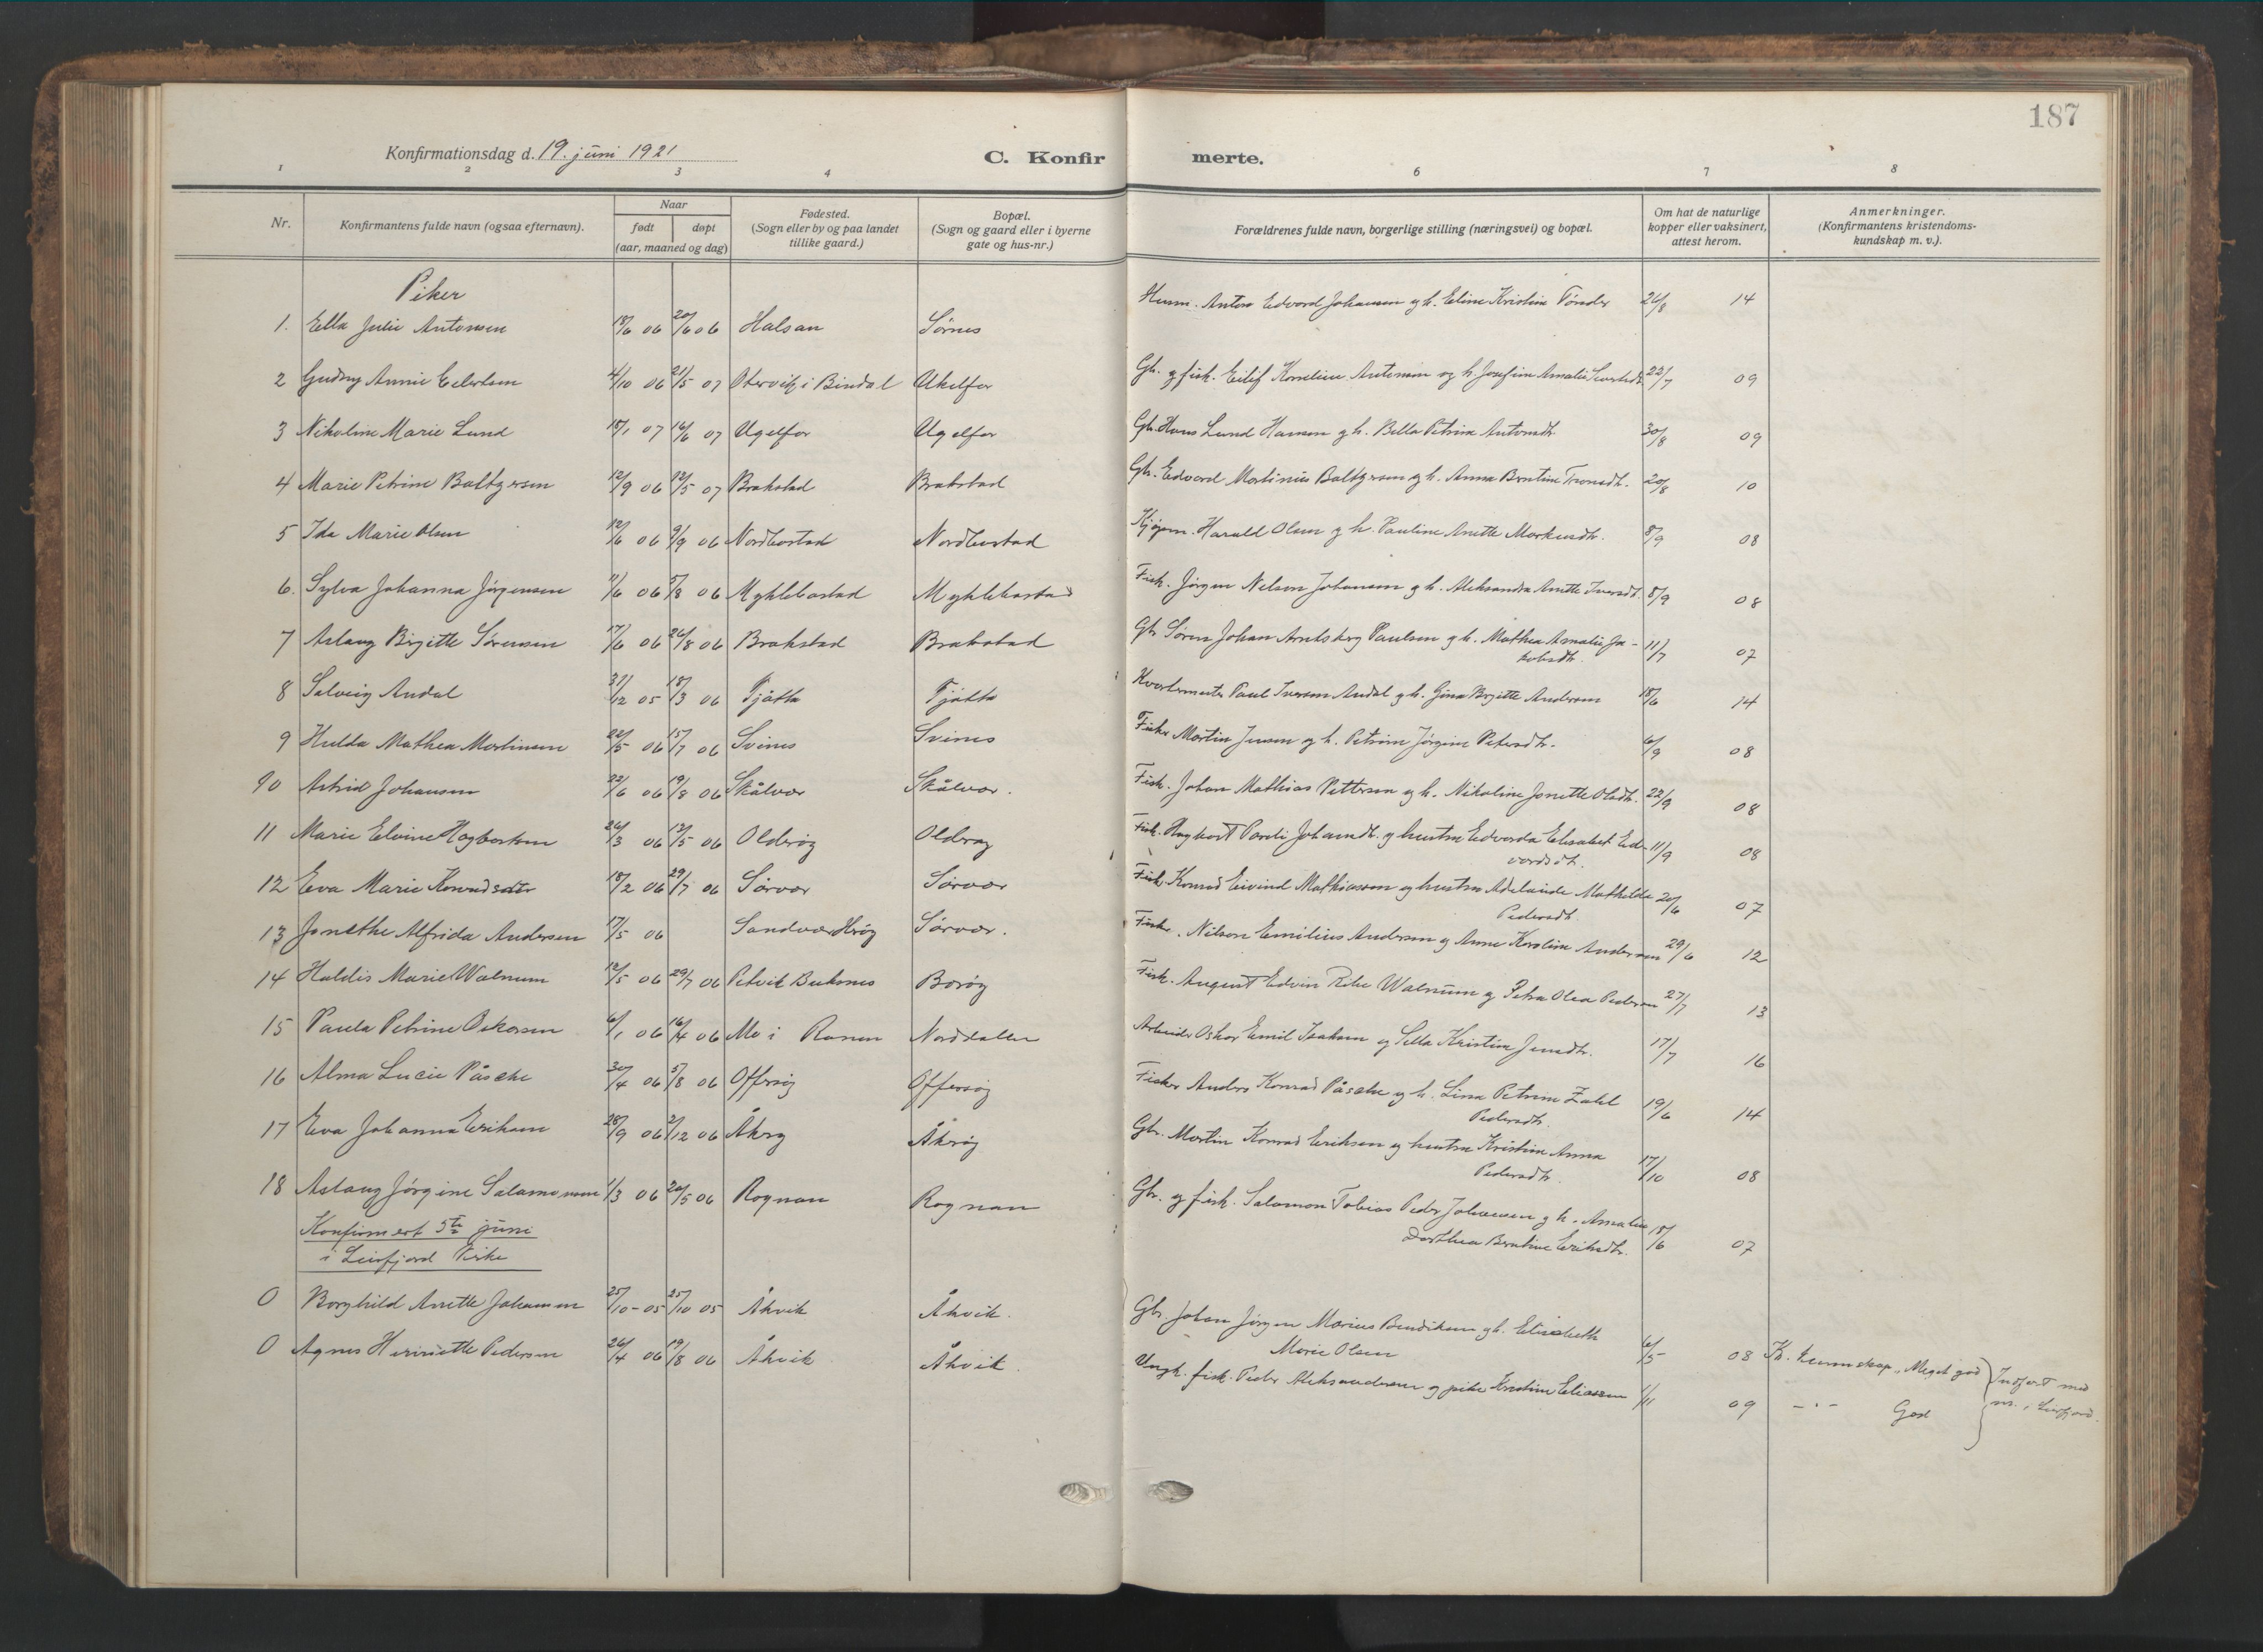 187
Konfirmationsdag d. 19. juni 1921
C. Konfirmerte.
1 2 3 4 6 7 8
Nr.
Konfirmantens fulde navn (ogsaa efternavn).
Naar
født døpt
(aar, maaned og dag)
Fødested.
(Sogn eller by og paa landet
tillike gaard.)
Bopæl.
(Sogn og gaard eller i byerne
gate og hus-nr.)
Forældrenes fulde navn, borgerlige stilling (næringsvei) og bopæl.
Om hat de naturlige
kopper eller vaksinert,
attest herom.
Anmerkninger.
(Konfirmantens kristendoms-
kundskap m. v.).
Piker
1. Ella Julie Antonsen 18/6 06 20/6 06 Halsan Sørnes Husm. Anton Edvard Johansen g h. Eline Kristine Tønder 26/8 14
2 Gudny Annie Eilertsen 4/10 06 21/5 07 i Bindal Gb. g fisk. Eilif Antonsen og h. Josefine Amalie 22/7 09
3 Nikoline Marie Lund 15/1 07 16/6 07 Ugelfor Ugelfor Gb. Hans Lund Hansen g h. Bella Petrine Antonsdtr. 30/8 09
4 Marie Petrine Baltzersen 12/9 06 12/5 07 Brakstad Brakstad Gb. Edvard Martinius Baltzersen g h. Anna Bentine 20/8 10
5 Ida Marie Olsen 12/6 06 9/9 06 Nordbostad Nordbostad Kjøpm. Harald Olsen g h. Pauline Anette Markusdtr. 8/9 08
6. Sylva Johanna Jørgensen 11/6 06 5/8 06 Myklebostad Myklebostad Fisk. Jørgen Nelson Johansen g h. Aleksandra Anette Iversdt. 8/9 08
7 Aslaug Birgitte Sørensen 17/6 06 26/8 06 Brakstad Brakstad Gb. Søren Johan Arntsberg Paulsen g h. Mathea Amalie Ja-
kobsdtr. 11/7 07
8 Solveig Andal 31/12 05 18/3 06 Tjøtta Tjøtta Kvartermester Paul Iverson Andal g h. Gina Birgitte Andersen 18/6 14
9 Hulda Mathea Martinsen 22/5 06 15/7 06 Svines Svines Fisker Martin Jensen og h. Petrine Jørgine Petersdtr. 6/9 08
10 Astrid Johansen 22/6 06 19/8 06 Skålvær Skålvær. Fisk. Johan Mathias Pettersen og h. Nikoline Jonette Olsdtr. 22/9 08
11 Marie Elvine Hagbartsen 26/3 06 13/5 06 Olderøy Olderøy Fisk. Hagbart Pareli Johansdt. g hustru Edvarda Elisabet Ed-
vardsdt. 11/9 08
12 Eva Marie Konradsdtr 18/2 06 29/7 06 Sørvær Sørvær Fisk. Konrad Eivind Mathiassen og hustru Adelaide Mathilde
Pedersdt. 20/6 07
13 Jonethe Alfrida Andersen 17/5 06 Sandvær Herøy Sørvær. Fisker. Nilson Emilius Andersen og Anne Karoline Andersen 29/6 12
14 Haldis Marie Walnum 12/5 06 29/7 06 Petvik Buksnes Borøy Fisk. August Edvin Walnum g Petra Olea Pedersen 27/7 13
15 Paula Petrine Oskarsen 6/1 06 16/4 06 Mo i Ranen Norddalen Arbeider Oskar Emil Isaksen og Sella Kristine Jensdtr. 17/7 16
16 Alma Lucie Påsche 30/4 06 5/8 06 Offersøy Offersøy Fisker Anders Konrad Påsche g h. Lina Petrine Zahl
Pedersdtr. 19/6 14
17 Eva Johanna Eriksen 28/9 06 2/12 06 Åkrøy Åkrøy Gbr. Martin Konrad Eriksen og hustru Kristine Anna
Pedersdtr. 17/10 08
18 Aslaug Jørgine Salamonsen 1/3 06 20/5 06 Rognan Rognan Gbr. og fisk. Salamon Tobias Peder Johansen g h. Amalie
Dorthea Bentine Eriksdtr. 18/6 07
Konfirmert 5te juni
i Leirfjord Kirke
0 Borghild Anette Johansen 25/10 - 05 25/10 05 Åkvik Åkvik. Gbr. Johan Jørgen Marius Bendiksen g h. Elisabeth
Marie Olsen 6/5 08 K. kunnskap. Meget god
0 Agnes Henriette Pedersen 26/4 06 19/8 06 Åkvik Åkvik. Ungk. fisk. Peder Aleksandersen og pike Kristine Eliassen 1/11 09 - " - God
Indført med
nr. i Leirfjord.